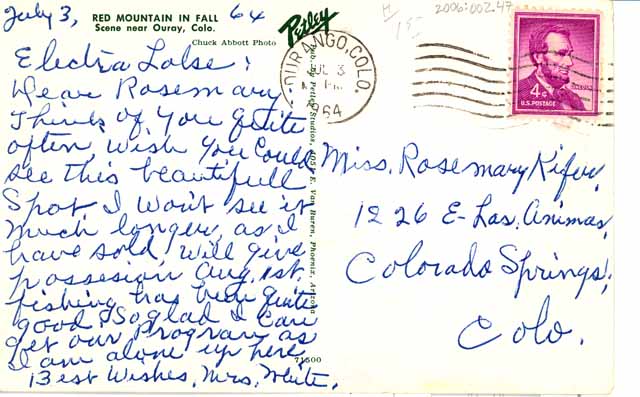 July 3, 64
RED MOUNTAIN IN FALL
Scene near Ouray, Colo.
Chuck Abbott Photo
Petley
Pub. by Petley Studios, 4051 E. Van Buren, Phoenix, Arizona
71500
Electra Lake:
Dear Rosemary
Think of you quite
often, wish you could
see this beautifull
spot I won't see it
much longer, as I
have sold, will give
possesion Aug. 1st.
fishing has been quite
good. So glad I can
get our program as
I am alone up here
Best Wishes, Mrs. White.
DURANGO, COLO.
JUL 3
PM
1964
2006:002.47
4¢
U.S. POSTAGE
LINCOLN
Miss. Rosemary Kifer,
1226 E- Las. Animas,
Colorado Springs,
Colo.